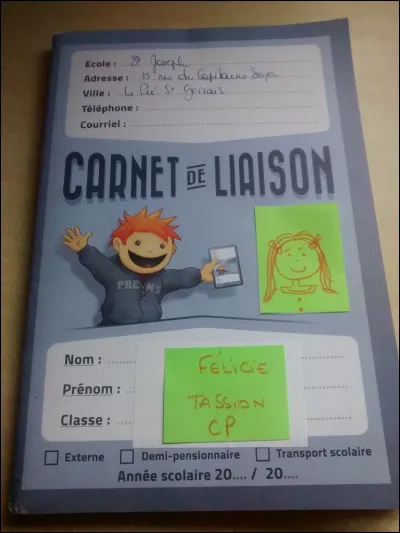 Ecole : St Joseph
Adresse : 15 rue du Capitaine Soyer
Ville : Le Pré St Gervais
Téléphone :
Courriel :
CARNET DE LIAISON
PREMS
Nom :
Prénom :
Classe :
FÉLICIE
TASSION
CP
Externe Demi-pensionnaire Transport scolaire
Année scolaire 20.... / 20....